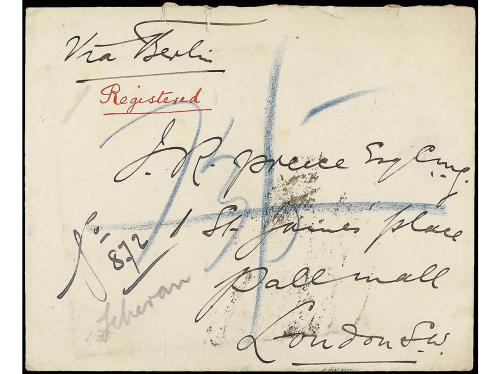 Via Berlin
Registered
J. R. Preece Esq C.M.G.
1 St. James' Place
Pall Mall
London S.W.
No 872
Teheran